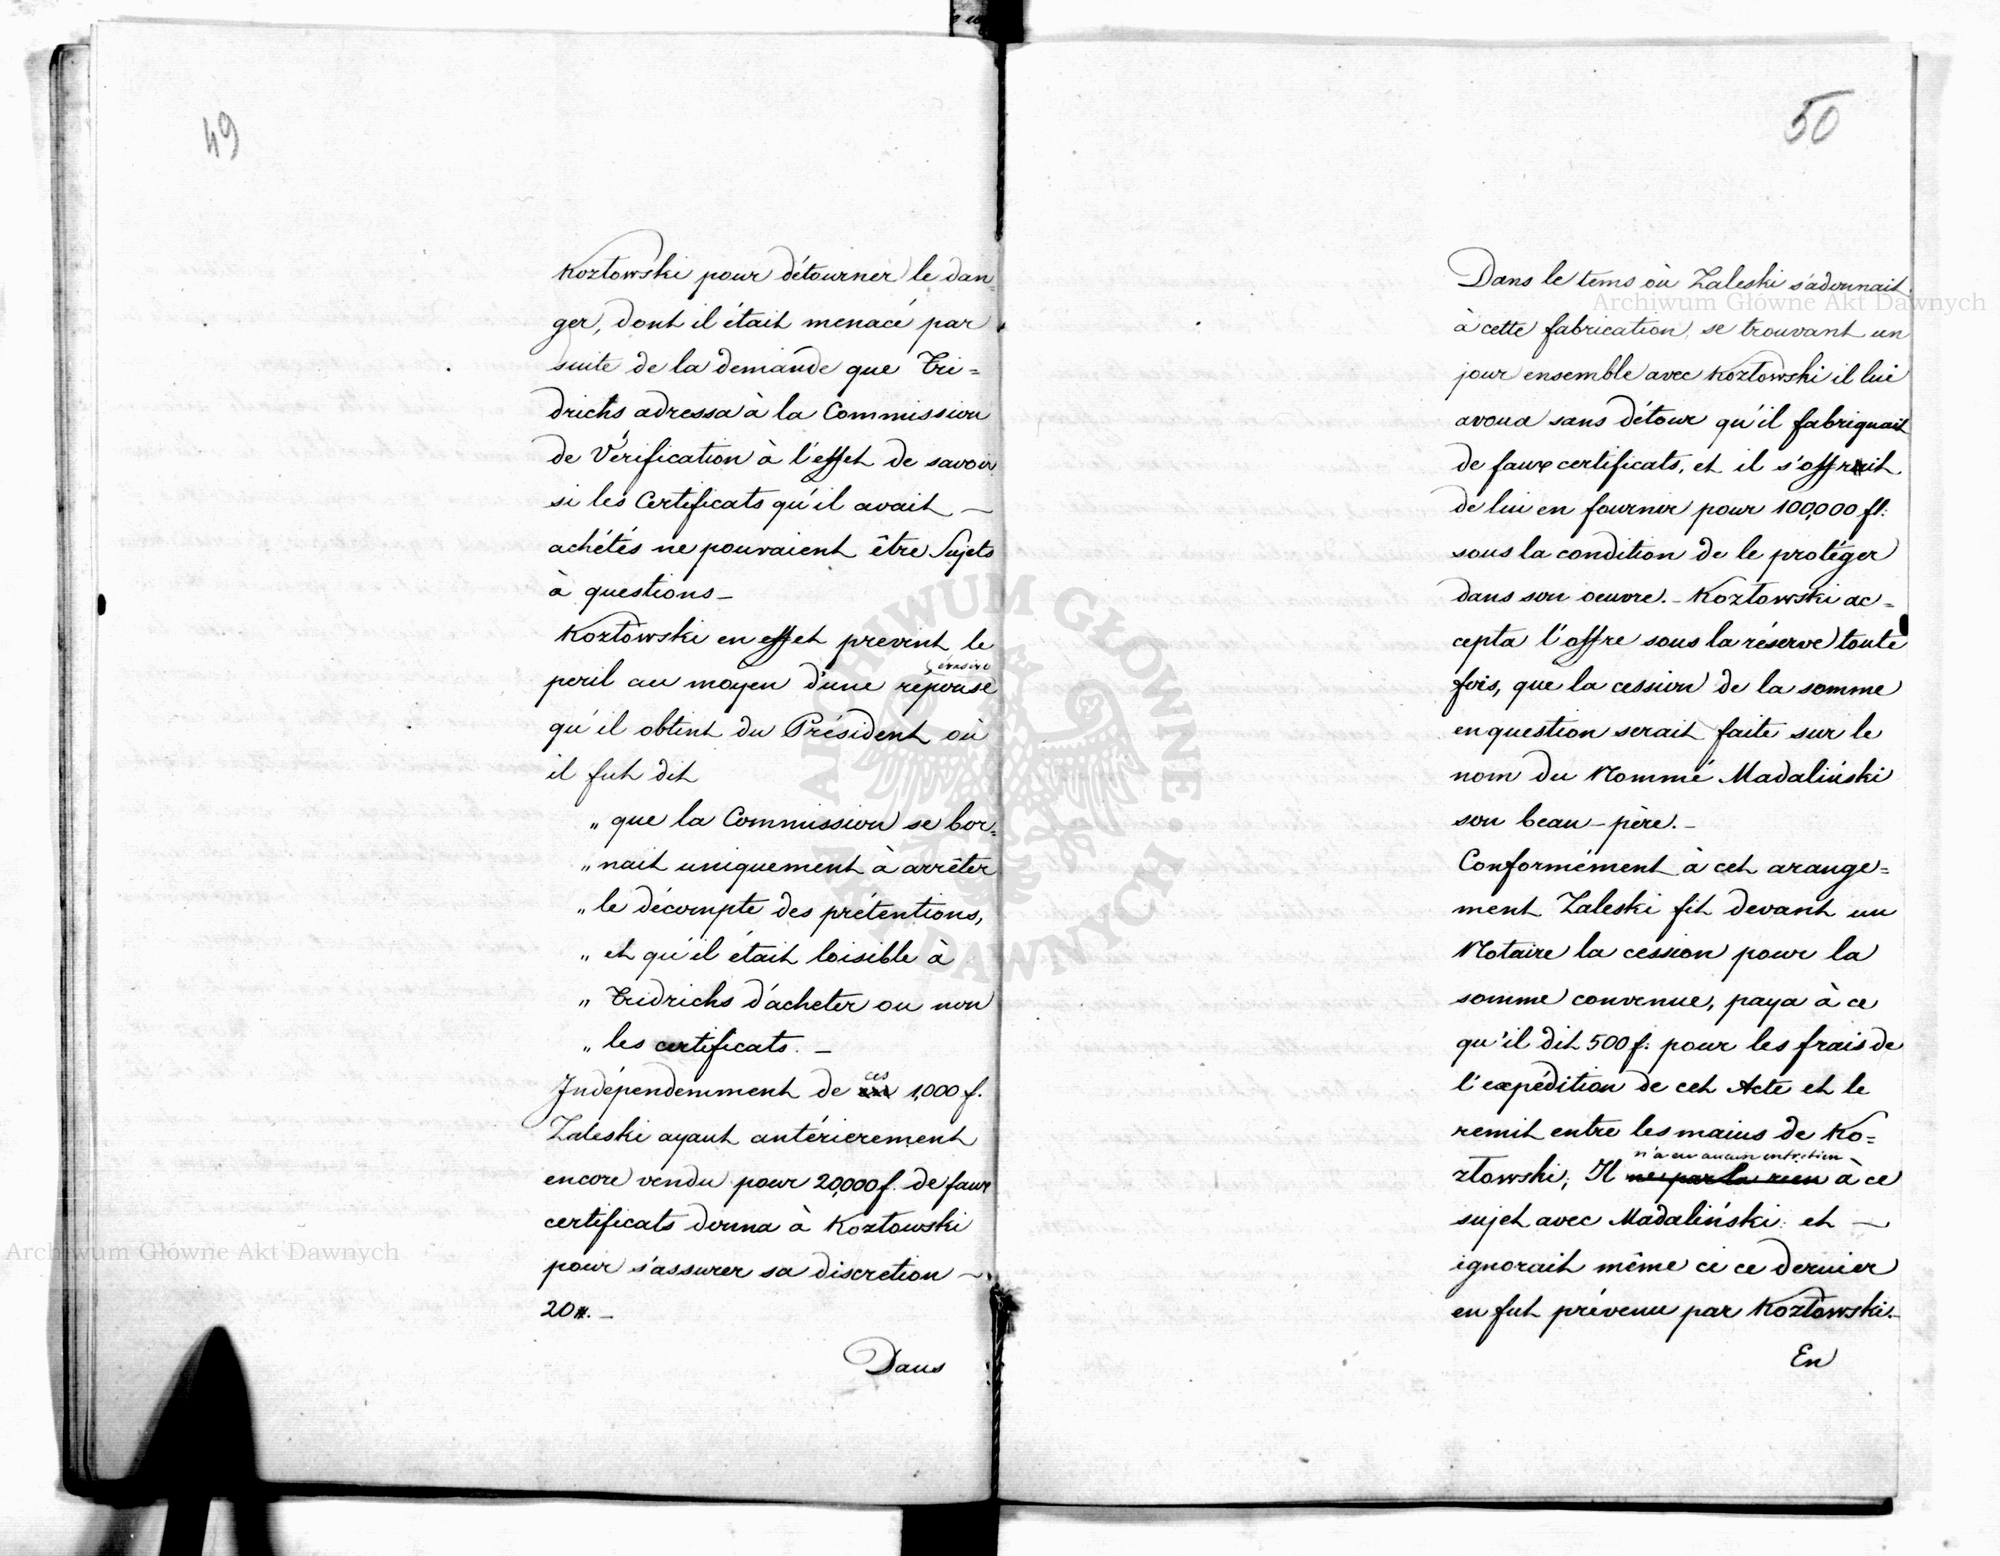 49
Kozłowski pour détourner le dan=
ger, dont il était menacé par
suite de la demande que Fri=
drichs adressa à la Commission
de Vérification à l'effet de savoir
si les Certificats qu'il avait —
achétés ne pouvaient être Sujets
à questions —
Kozłowski en effet prevint le
évasive
peril au moyen d'une réponse
qu'il obtint du Président où
il fut dit
„ que la Commission se bor=
„ nait uniquement à arrêter
„ le décompte des prétentions,
„ et qu'il était loisible à
„ Fridrichs d'acheter ou non
„ les certificats. —
ces
Indépendemment de 1,000 f.
Zaleski ayant antérierement
encore vendu pour 20,000 f. de faux
certificats donna à Kozłowski
pour s'assurer sa discretion —
20 #. —
Dans
50
Dans le tems où Zaleski s'adonnait
à cette fabrication, se trouvant un
jour ensemble avec Kozłowski il lui
avoua sans détour qu'il fabriquait
de faux certificats, et il s'offrait
de lui en fournir pour 100,000 fl:
sous la condition de le protéger
dans son oeuvre. — Kozłowski ac=
cepta l'offre sous la réserve toute
fois, que la cession de la somme
en question serait faite sur le
nom du Nommé Madaliński
son beau-père. —
Conformément à cet arange=
ment Zaleski fit devant un
Notaire la cession pour la
somme convenue, paya à ce
qu'il dit 500 f: pour les frais de
l'expédition de cet Acte et le
remit entre les mains de Ko=
n'a eu aucun entretien
złowski, Il ne parla rien à ce
sujet avec Madaliński et —
ignorait même ci ce dernier
en fut prévenu par Kozłowski. —
En
Archiwum Główne Akt Dawnych
Archiwum Główne Akt Dawnych
ARCHIWUM GŁÓWNE · AKT DAWNYCH ·